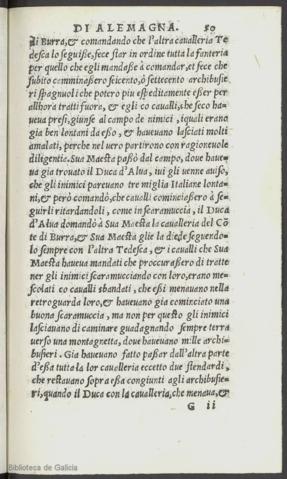 DI ALEMAGNA. 50
di Burra, & comandando che l'altra cauallería Te
desca lo seguisse, fece star in ordine tutta la fanteria
per quello che egli mandasse à comandar, et fece che
subito camminassero seicento, ò settecento archibusie
ri spagnuoli che potero piu espeditamente esser per
allhora tratti fuora, & egli co caualli, che seco ha-
ueua presi, giunse al campo de nimici, iquali erano
gia ben lontani da esso, & haueuano lasciati molti
amalati, perche nel uero partirono con ragioneuole
diligentia. Sua Maesta passò dal campo, doue haue-
ua gia trouato il Duca d'Alua, iui gli uenne auiso,
che gli inimici pareuano tre miglia Italiane lonta-
ni, & però comandò, che caualli cominciassero à se-
guirli ritardandoli, come in scaramuccia, il Duca
d'Alua domandò à Sua Maestà la caualleria del Cō
te di Burra, & Sua Maestà glie la diede seguendo-
lo sempre con l'altra Tedesca, & i caualli che Sua
Maestà haueua mandati che proccurassero di tratte
ner gli inimici scaramucciando con loro, erano me-
scolati co caualli sbandati, che essi menauano nella
retroguarda loro, & haueuano gia cominciato una
buona scaramuccia, ma non per questo gli inimici
lasciauano di caminare guadagnando sempre terra
uerso una montagnetta, doue haueuano mille archi-
busieri. Gia haueuano fatto passar dall'altra parte
d'essa tutta la lor caualleria eccetto due stendardi,
che restauano sopra essa congiunti agli archibusie-
ri, quando il Duca con la caualleria, che menaua, &
G ii
Biblioteca de Galicia